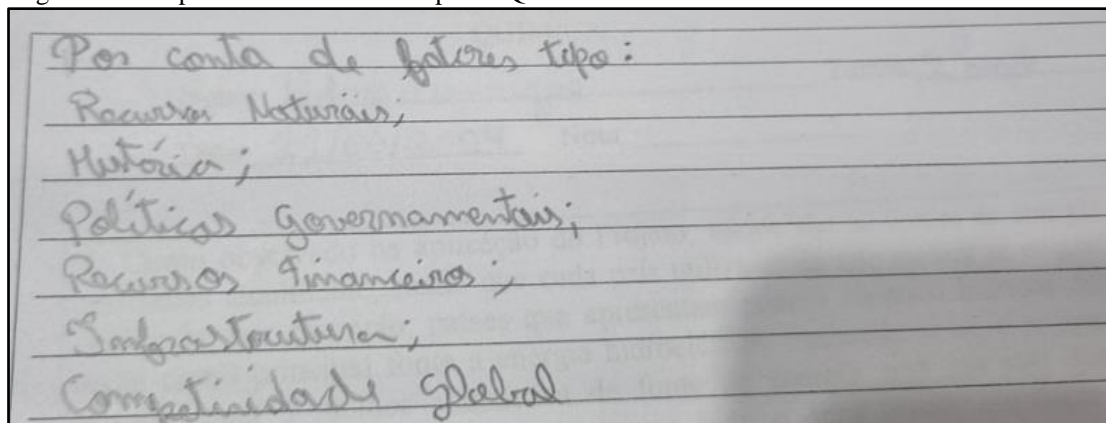 Por conta de fatores tipo:
Recursos Naturais;
História;
Políticas governamentais;
Recursos financeiros;
Infraestrutura;
Competividade global